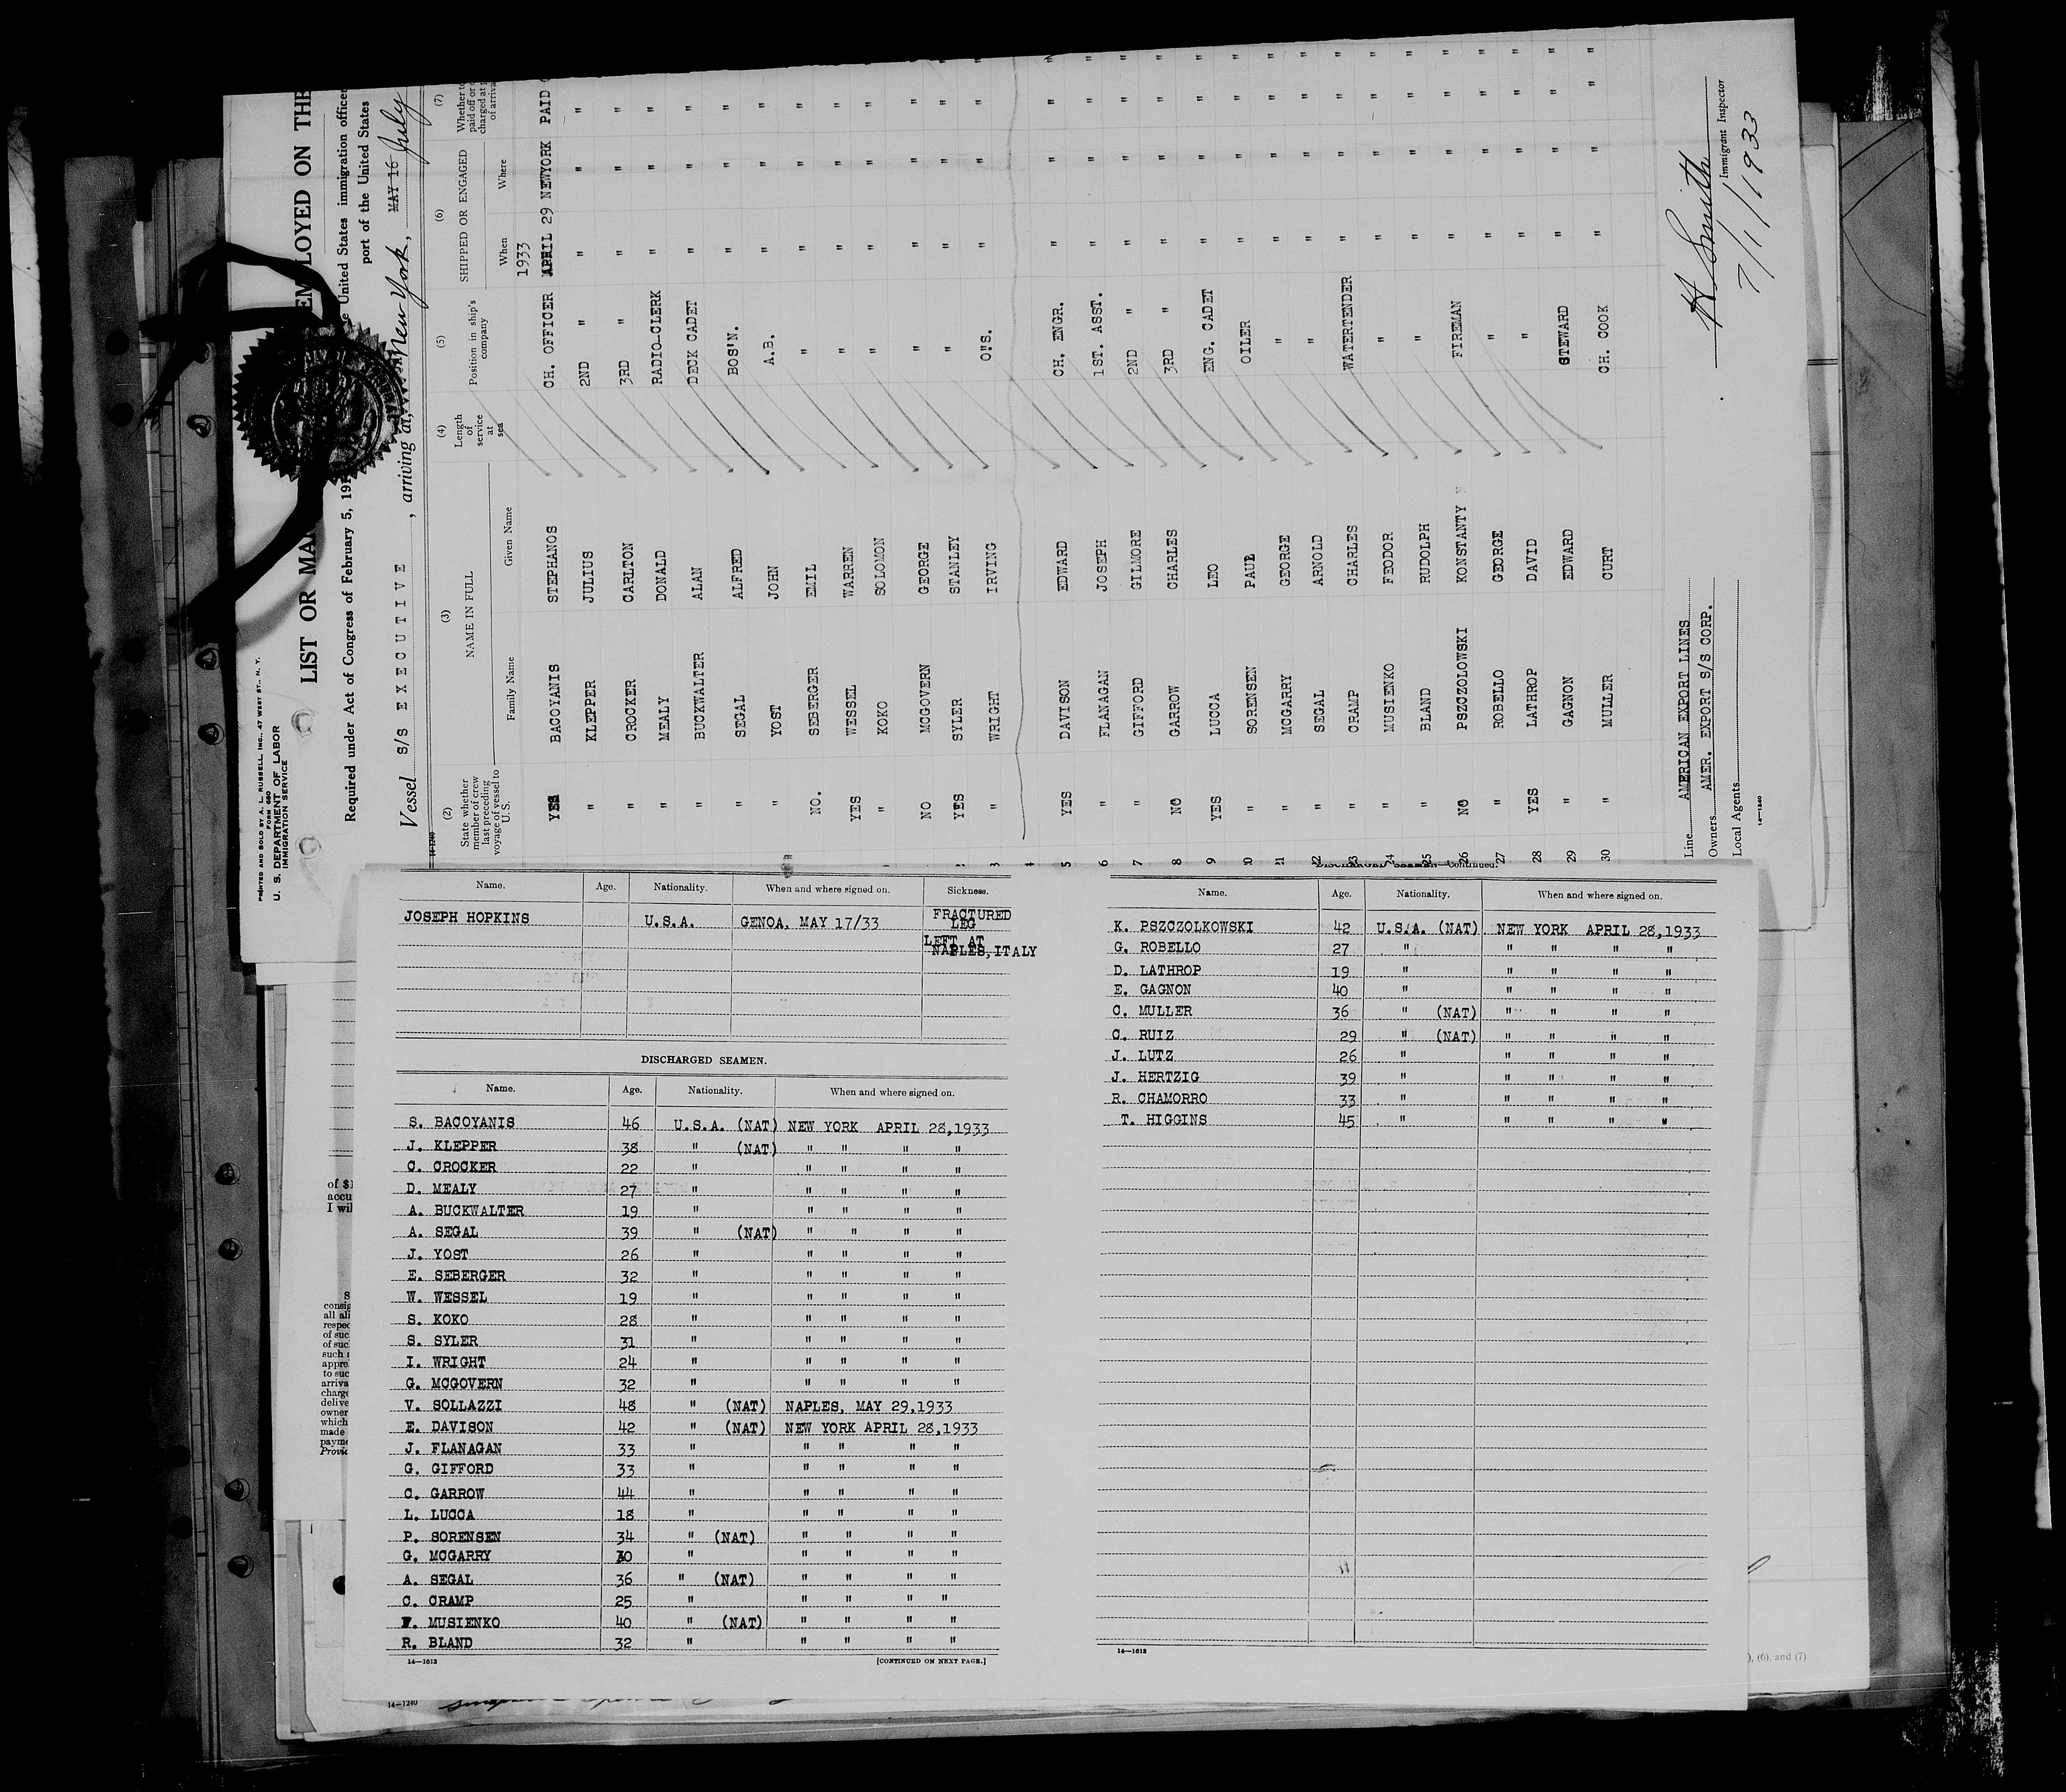 PRINTED AND SOLD BY A. L. RUSSELL, INC., 47 WEST ST., N. Y.
FORM 680
U. S. DEPARTMENT OF LABOR
IMMIGRATION SERVICE
LIST OR EMPLOYED ON THE
Required under Act of Congress of February 5, United States immigration officer
port of the United States
Vessel S/S EXECUTIVE, arriving at New York, MAY 16 July
14-1240
(2) (3) (4) (5) (6) (7)
State whether member of crew last preceding voyage of vessel to U.S. NAME IN FULL Length of service at sea Position in ship's company SHIPPED OR ENGAGED Whether to paid off or charged at of arriva
Family Name Given Name When Where
1933
YES BACOYANIS STEPHANOS CH. OFFICER APRIL 29 NEWYORK PAID
" KLEPPER JULIUS 2ND " " " "
" CROCKER CARLTON 3RD " " " "
" MEALY DONALD RADIO-CLERK " " "
" BUCKWALTER ALAN DECK CADET " " "
" SEGAL ALFRED BOS'N. " " "
" YOST JOHN A.B. " " "
NO. SEBERGER EMIL " " " "
YES WESSEL WARREN " " " "
" KOKO SOLOMON " " " "
NO MCGOVERN GEORGE " " " "
YES SYLER STANLEY " " " "
" WRIGHT IRVING O.S. " " "
4
5 YES DAVISON EDWARD CH. ENGR. " " " "
6 " FLANAGAN JOSEPH 1ST. ASST. " " " "
7 " GIFFORD GILMORE 2ND " " " " "
8 NO GARROW CHARLES 3RD " " " " "
9 YES LUCCA LEO ENG. CADET " " " "
10 " SORENSEN PAUL OILER " " " "
11 " MCGARRY GEORGE " " " " "
12 " SEGAL ARNOLD " " " " "
13 " CRAMP CHARLES WATERTENDER " " " "
14 " MUSIENKO FEODOR " " " " "
25 " BLAND RUDOLPH " " " " "
26 NO PSZCZOLOWSKI KONSTANTY FIREMAN " " " "
27 " ROBELLO GEORGE " " " " "
28 YES LATHROP DAVID " " " " "
29 " GAGNON EDWARD STEWARD " " " "
30 " MULLER CURT CH. COOK " " " "
Line AMERICAN EXPORT LINES
Owners AMER. EXPORT S/S CORP.
Local Agents
14-1240
H Smith
Immigrant Inspector
7/1/1933
Name. Age. Nationality. When and where signed on. Sickness.
JOSEPH HOPKINS U.S.A. GENOA, MAY 17/33 FRACTURED
LEG
LEFT AT
NAPLES, ITALY
DISCHARGED SEAMEN.
Name. Age. Nationality. When and where signed on.
S. BACOYANIS 46 U.S.A. (NAT) NEW YORK APRIL 28,1933
J. KLEPPER 38 " (NAT) " " " "
C. CROCKER 22 " " " " "
D. MEALY 27 " " " " "
A. BUCKWALTER 19 " " " " "
A. SEGAL 39 " (NAT) " " " "
J. YOST 26 " " " " "
E. SEBERGER 32 " " " " "
W. WESSEL 19 " " " " "
S. KOKO 28 " " " " "
S. SYLER 31 " " " " "
I. WRIGHT 24 " " " " "
G. MCGOVERN 32 " " " " "
V. SOLLAZZI 48 " (NAT) NAPLES, MAY 29,1933
E. DAVISON 42 " (NAT) NEW YORK APRIL 28,1933
J. FLANAGAN 33 " " " " "
G. GIFFORD 33 " " " " "
C. GARROW 44 " " " " "
L. LUCCA 18 " " " " "
P. SORENSEN 34 " (NAT) " " " "
G. MCGARRY 30 " " " " "
A. SEGAL 36 " (NAT) " " " "
C. CRAMP 25 " " " " "
F. MUSIENKO 40 " (NAT) " " " "
R. BLAND 32 " " " " "
14—1613 [CONTINUED ON NEXT PAGE.]
DISCHARGED SEAMEN—Continued.
Name. Age. Nationality. When and where signed on.
K. PSZCZOLKOWSKI 42 U.S.A. (NAT) NEW YORK APRIL 28,1933
G. ROBELLO 27 " " " " "
D. LATHROP 19 " " " " "
E. GAGNON 40 " " " " "
C. MULLER 36 " (NAT) " " " "
C. RUIZ 29 " (NAT) " " " "
J. LUTZ 26 " " " " "
J. HERTZIG 39 " " " " "
R. CHAMORRO 33 " " " " "
T. HIGGINS 45 " " " " "
14—1613
of $1
accu
I wil
consig
all ali
respec
of suc
of suc
such a
appre
to suc
arriva
charge
delive
owner
which
made
payme
Provid
14—1240
), (6), and (7)